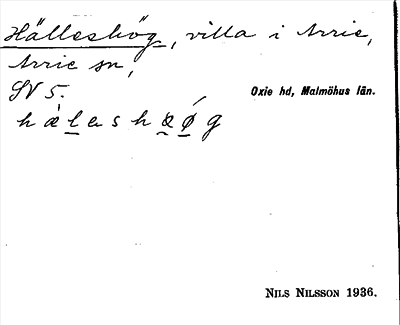 Hälleshög, villa i Arrie,
Arrie sn,
SV 5.
Oxie hd, Malmöhus län.
hæ̀l̲esh
NILS NILSSON 1936.